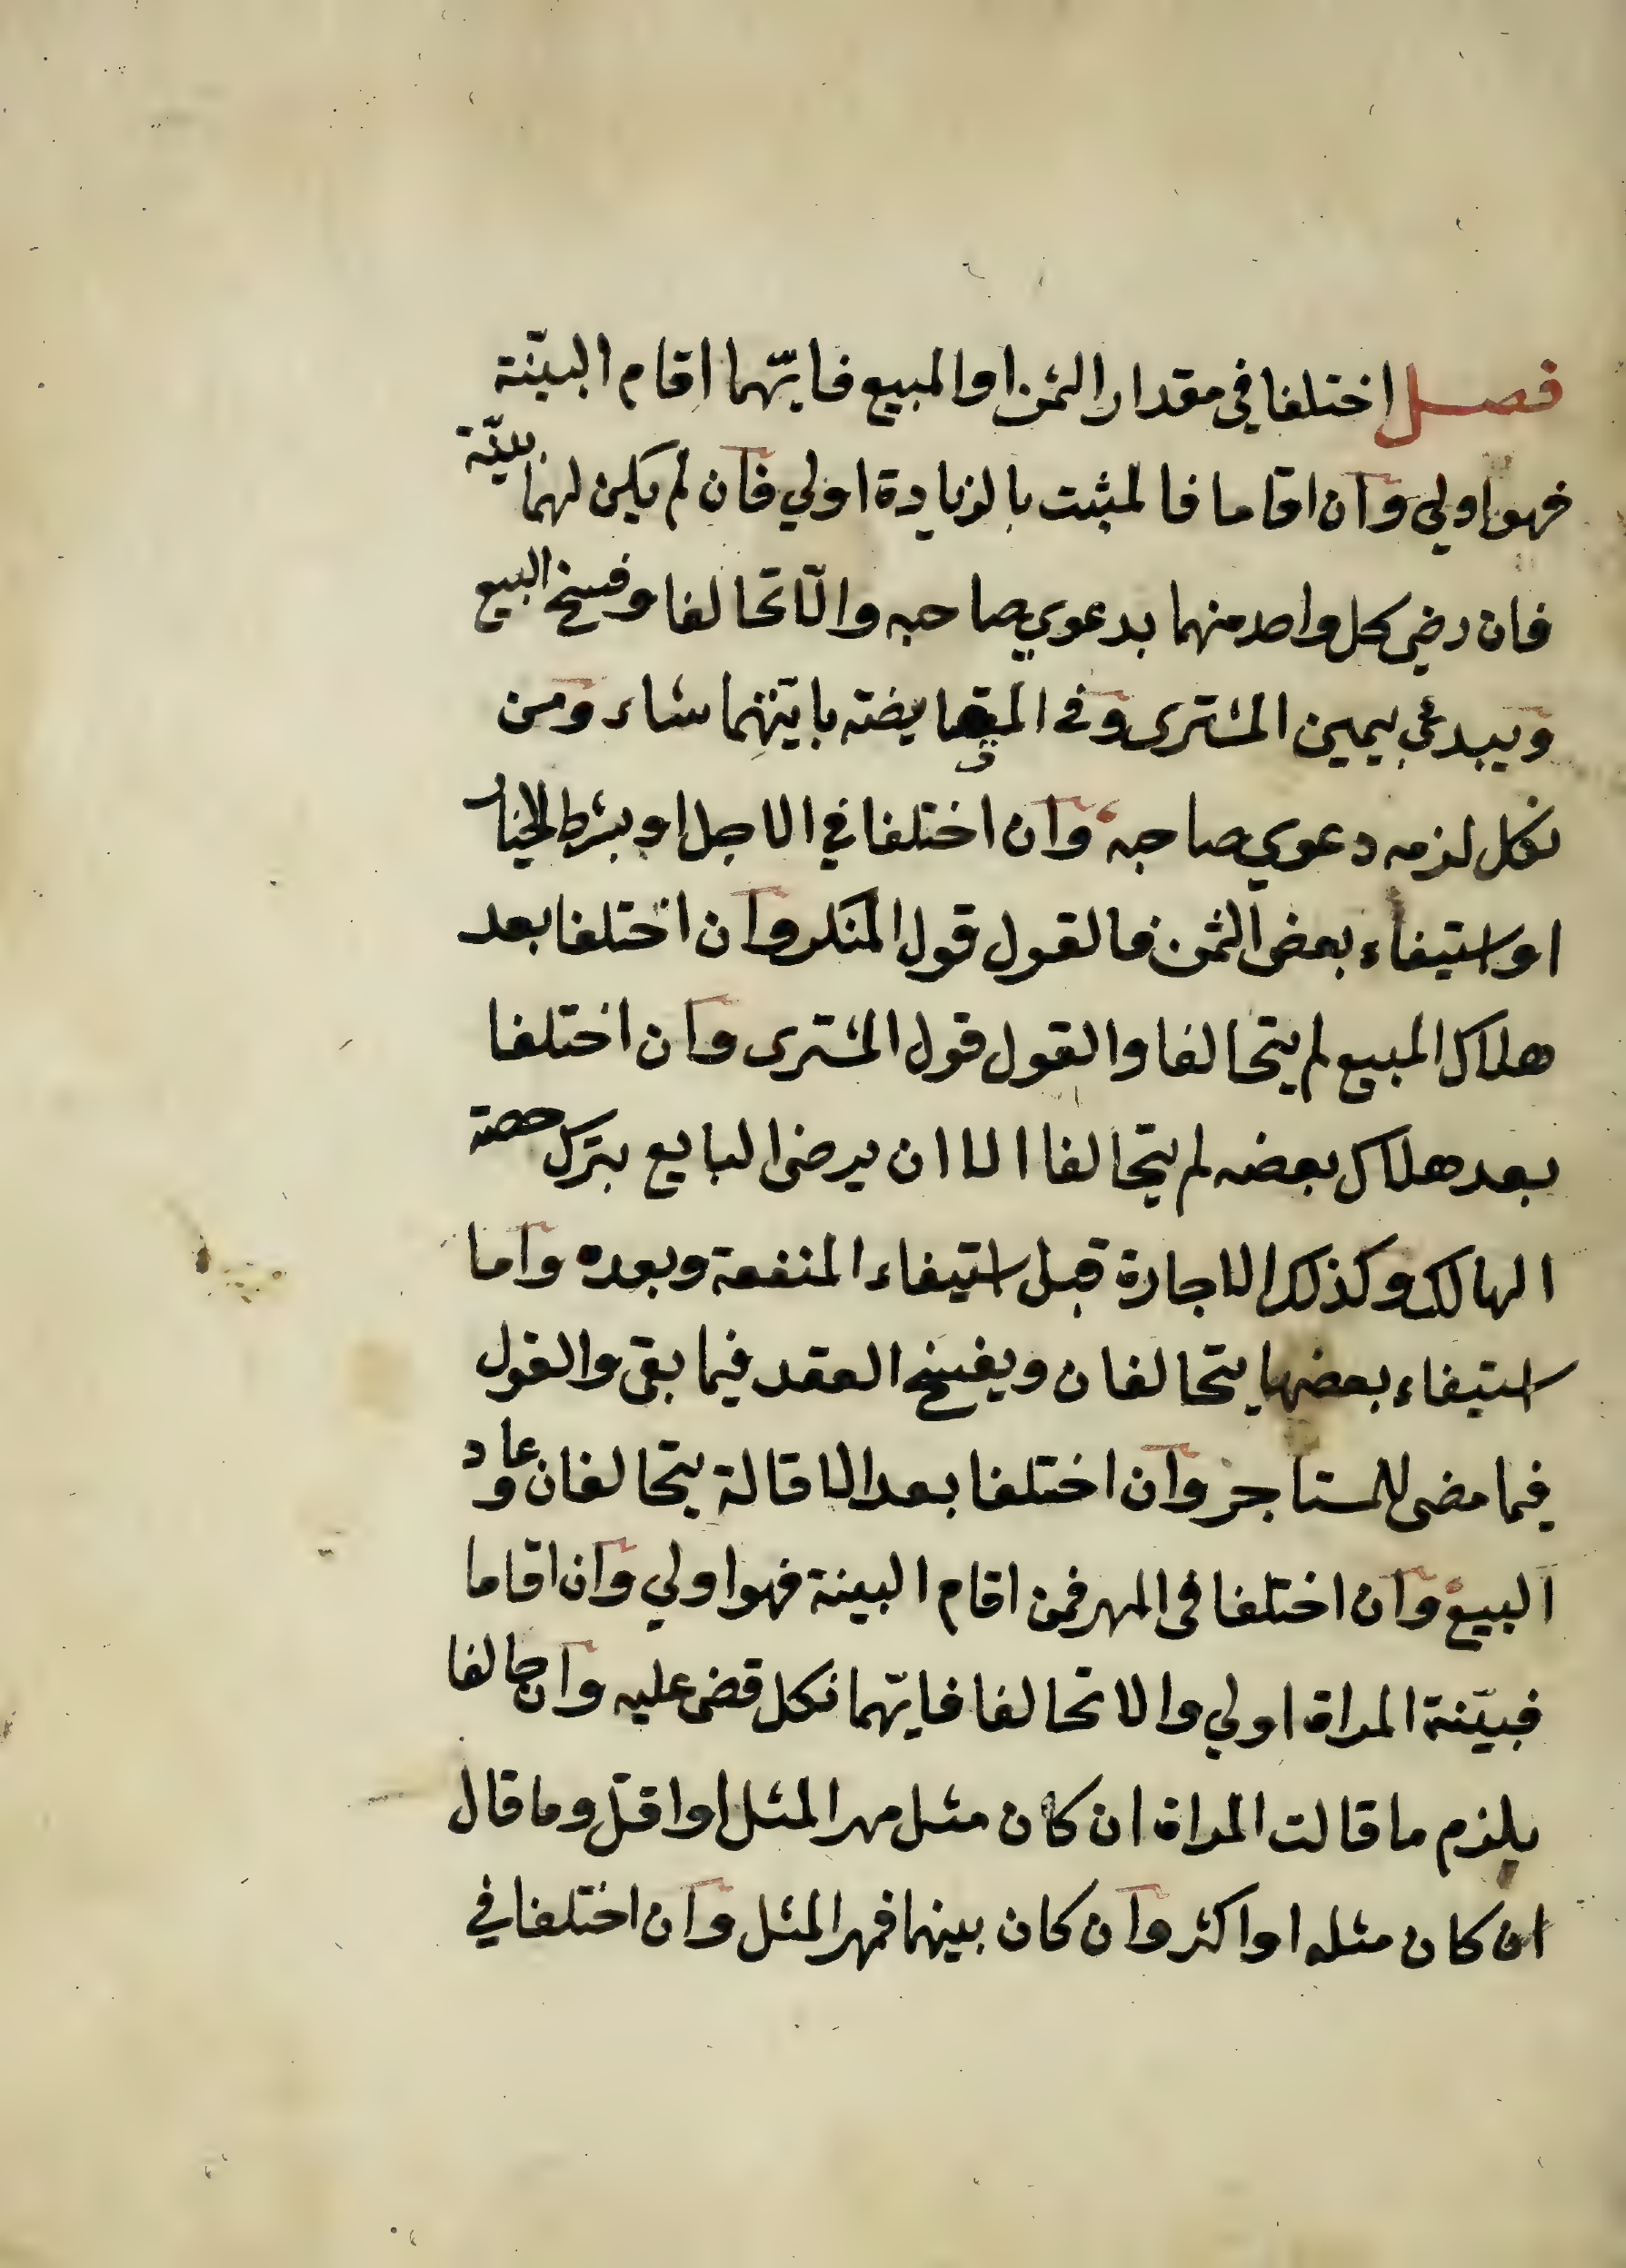 فصل اختلفا في مقدار الثمن او المبيع فايّهما اقام البيّنة
فهو اولي وان اقاما فالمثبت بالزيادة اولي فان لم يكن لهما بيّنة
فان رضي كل واحد منهما بدعوي صاحبه والّا تحالفا وفسخ البيع
ويبدئ بيمين المشترى وفى المقايضة بايّهما شاء ومن
نكل لزمه دعوي صاحبه وان اختلفا في الاجل او بشرط الخيار
او استيفاء بعض الثمن فالقول قول المنكر وان اختلفا بعد
هلاك المبيع لم يتحالفا والقول قول المشترى وان اختلفا
بعد هلاك بعضه لم يتحالفا الا ان يرضى البايع بترك حصة
الهالك وكذلك الاجارة قبل استيفاء المنفعة وبعده واما
استيفاء بعضها يتحالفان ويفسخ العقد فيما بقى والقول
فيما مضى للمستاجر وان اختلفا بعد الاقالة يتحالفان وعاد
البيع وان اختلفا فى المهر فمن اقام البينة فهو اولي وان اقاما
فبيّنة المراة اولي والا تحالفا فايّهما نكل قضى عليه وان تحالفا
يلزم ما قالت المراة ان كان مثل مهر المثل او اقلّ وما قال
ان كان مثله او اكثر وان كان بينهما فمهر المثل وان اختلفا في